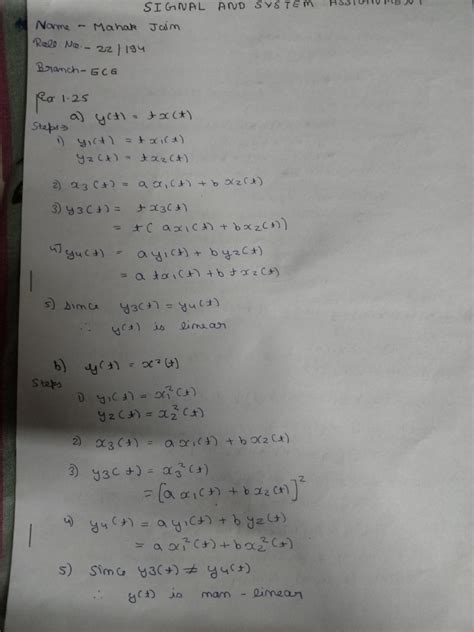 SIGNAL AND SYSTEM ASSIGNMENT
Name - Mahak Jain
Roll No. - 22/194
Branch - ECE
1.25
a) y(t) = tx(t)
Steps⇒
1) y1(t) = tx1(t)
y2(t) = tx2(t)
2) x3(t) = ax1(t) + bx2(t)
3) y3(t) = tx3(t)
= t( ax1(t) + bx2(t))
4) y4(t) = ay1(t) + by2(t)
= atx1(t) + btx2(t)
5) since y3(t) = y4(t)
∴ y(t) is linear
b) y(t) = x²(t)
Steps
1) y1(t) = x1²(t)
y2(t) = x2²(t)
2) x3(t) = ax1(t) + bx2(t)
3) y3(t) = x3²(t)
= [ax1(t) + bx2(t)]²
4) y4(t) = ay1(t) + by2(t)
= ax1²(t) + bx2²(t)
5) Since y3(t) ≠ y4(t)
∴ y(t) is non-linear